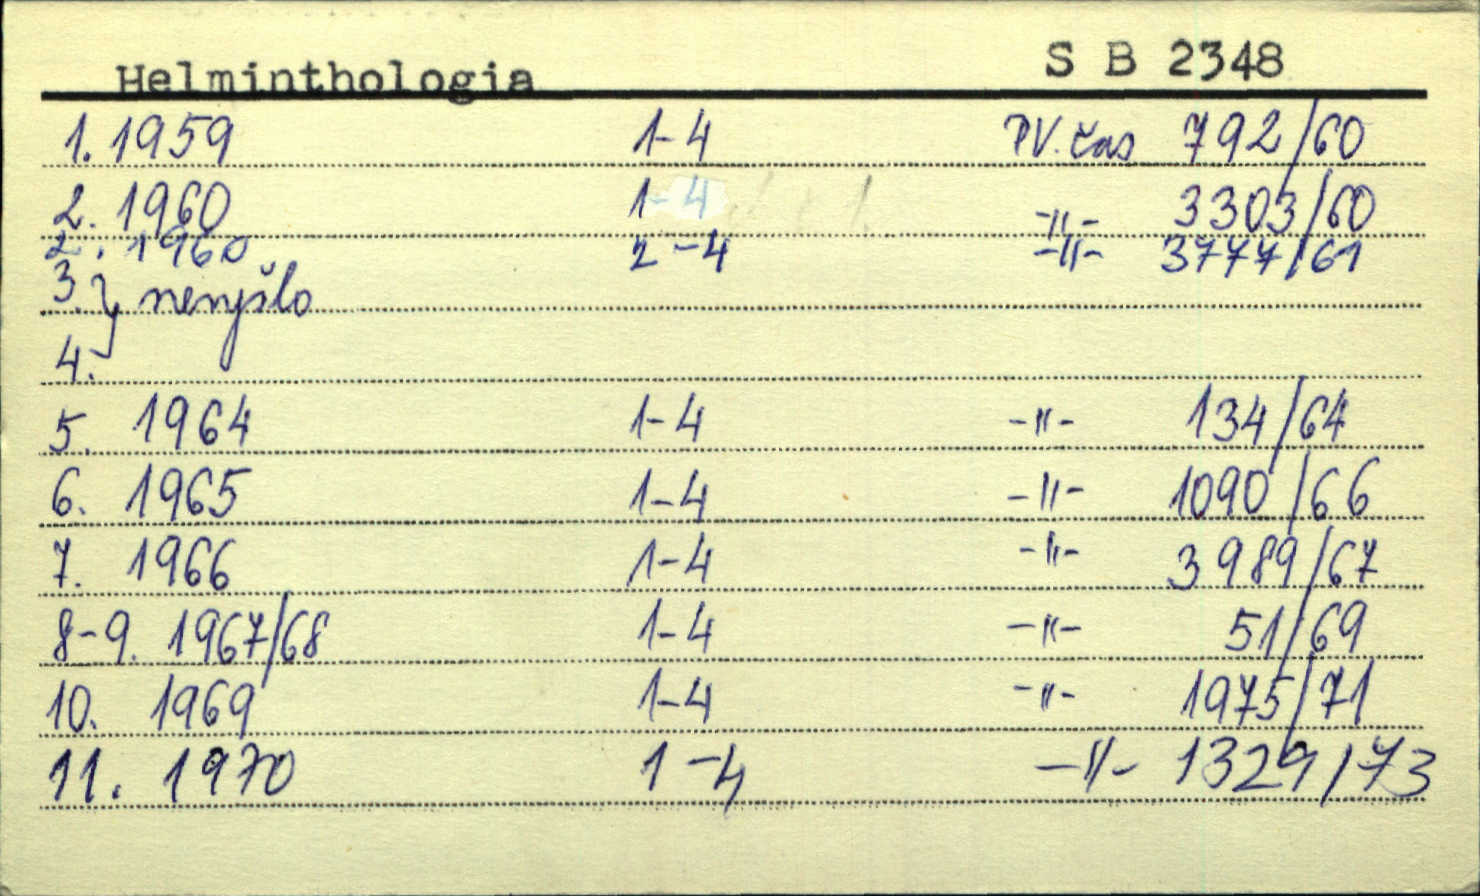 Helminthologia S B 2348
1. 1959 1-4 PV. čas 792/60
2. 1960 1-4 -"- 3303/60
2. 1960 2-4 -"- 3777/61
3. } nevyšlo
4.
5. 1964 1-4 -"- 134/64
6. 1965 1-4 -"- 1090/66
7. 1966 1-4 -"- 3989/67
8-9. 1967/68 1-4 -"- 51/69
10. 1969 1-4 -"- 1975/71
11. 1970 1-4 -"- 1329/73